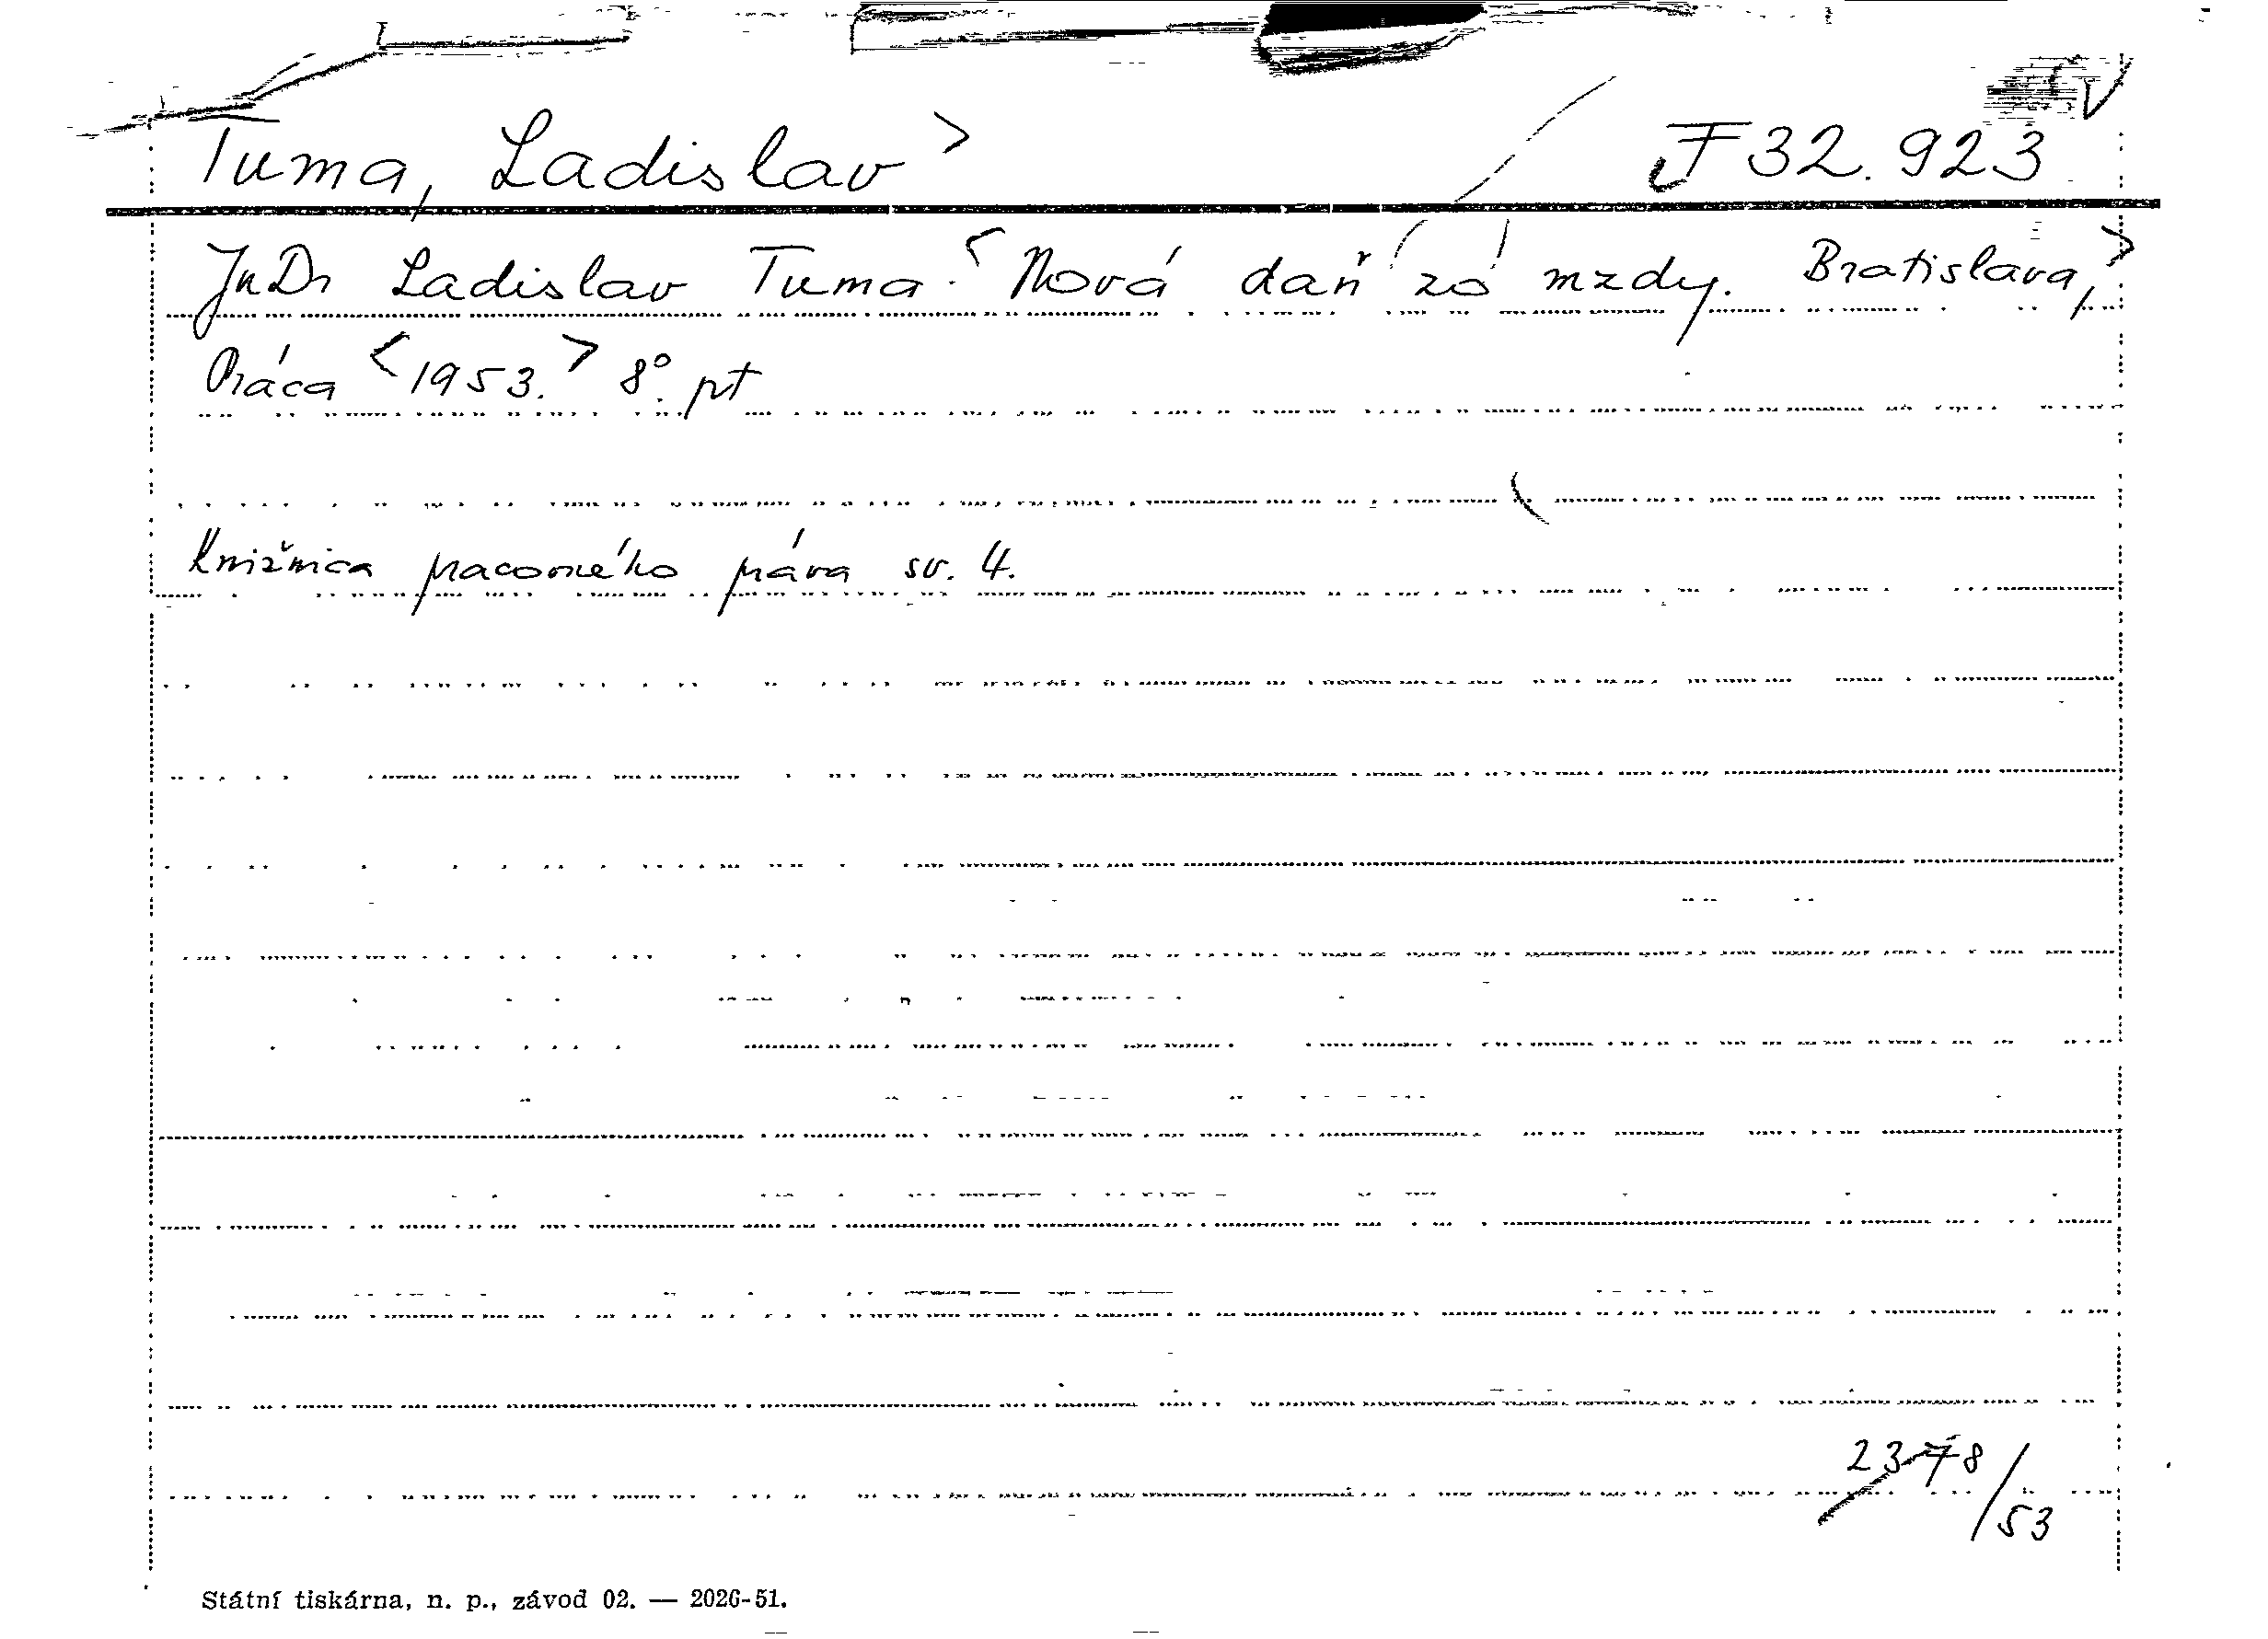 Tuma, Ladislav > F 32.923
JuDr Ladislav Tuma: < Nová daň zo mzdy. Bratislava, >
Práca < 1953. > 8°. pt
Knižnica pracovného práva sv. 4.
2378/53
Státní tiskárna, n. p., závod 02. — 2026-51.